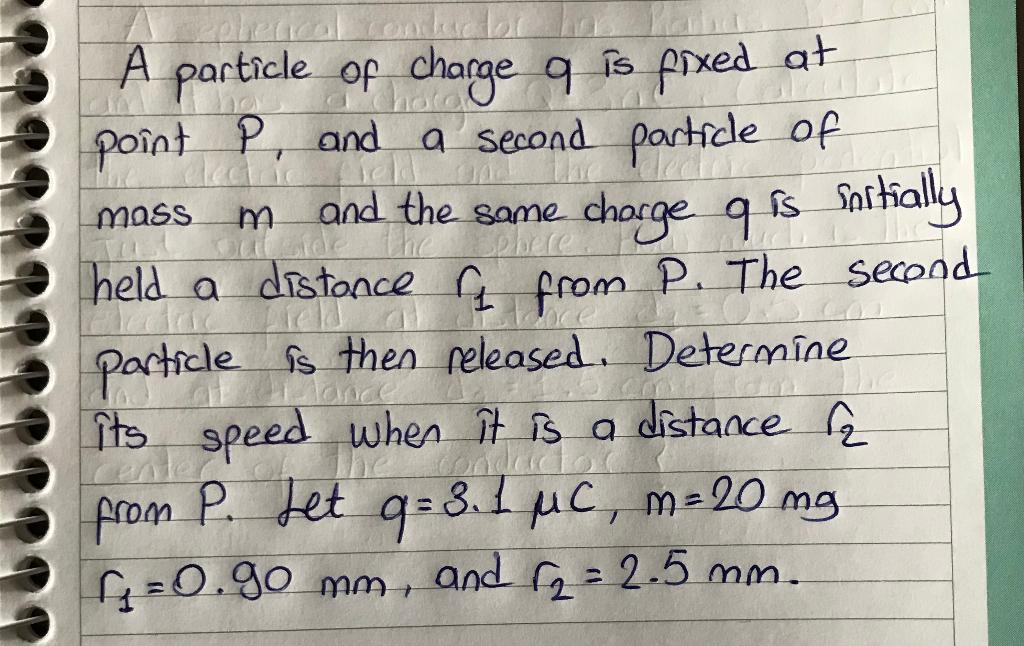 A particle of charge q is fixed at
point P, and a second particle of
mass m and the same charge q is initially
held a distance r1 from P. The second
particle is then released. Determine
its speed when it is a distance r2
from P. Let q=3.1 μC, m=20 mg
r1=0.90 mm, and r2=2.5 mm.